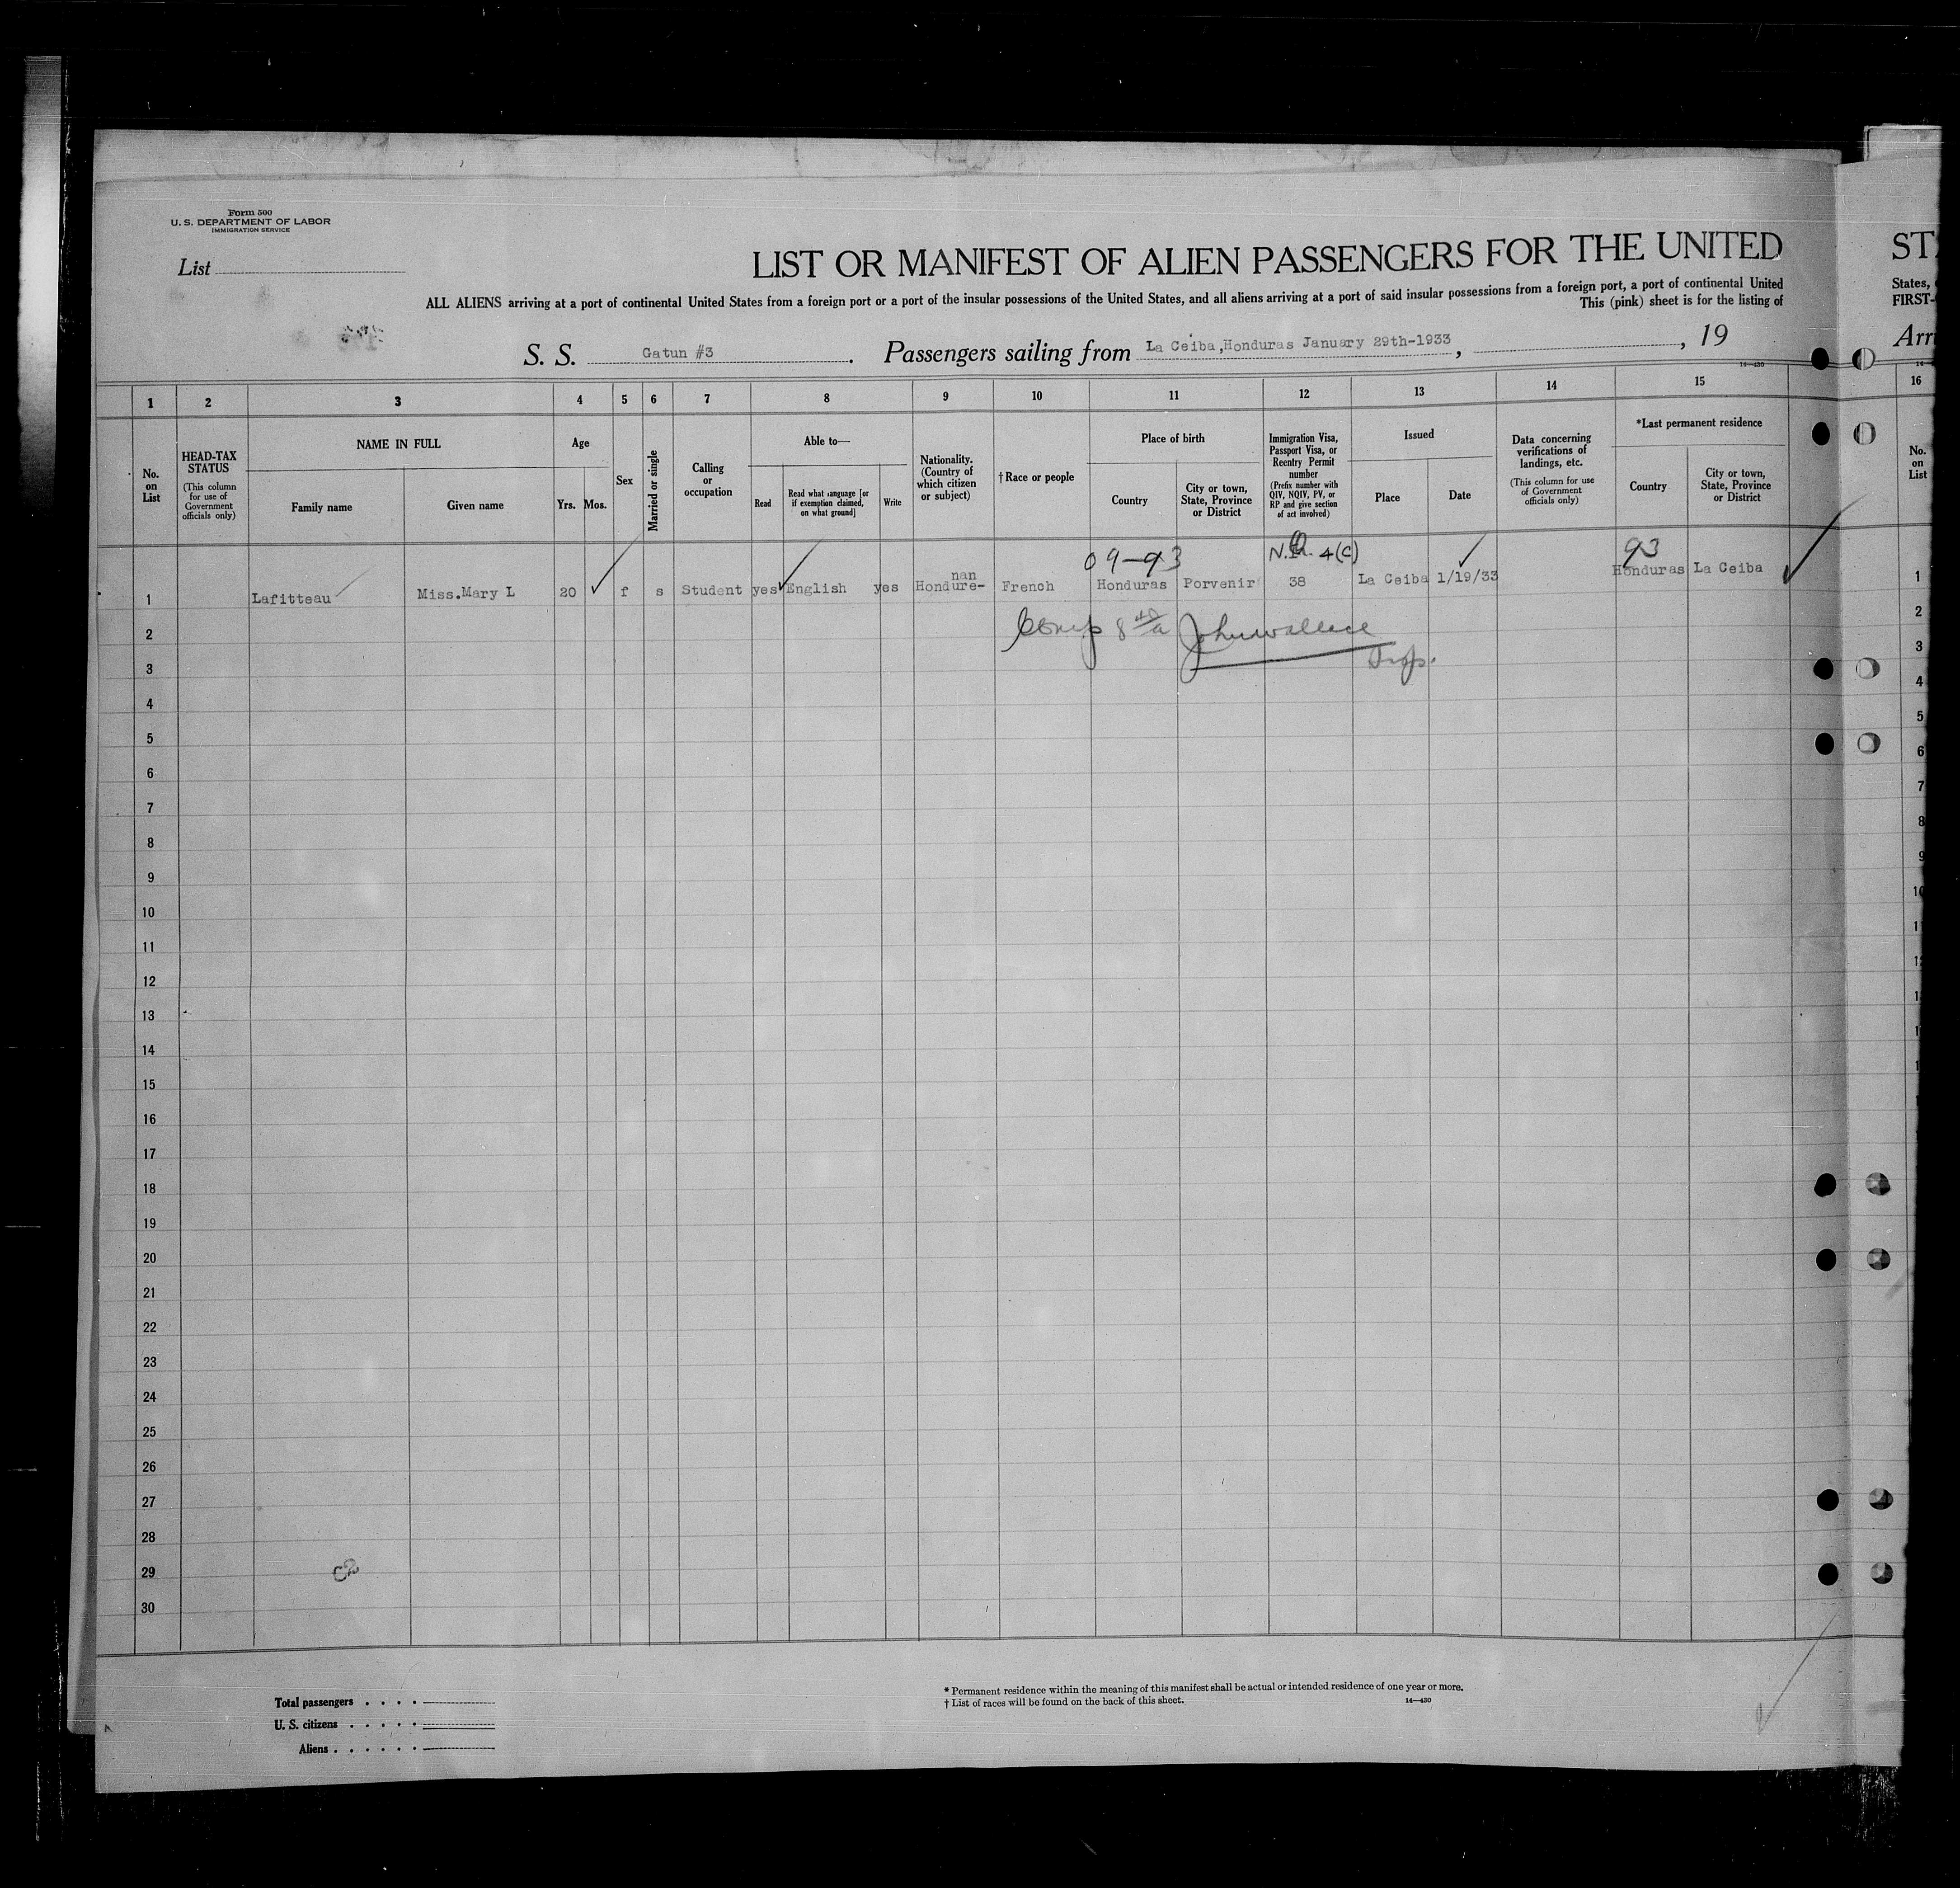 Form 500
U. S. DEPARTMENT OF LABOR
IMMIGRATION SERVICE
List
LIST OR MANIFEST OF ALIEN PASSENGERS FOR THE UNITED
ALL ALIENS arriving at a port of continental United States from a foreign port or a port of the insular possessions of the United States, and all aliens arriving at a port of said insular possessions from a foreign port, a port of continental United
This (pink) sheet is for the listing of
S. S. Gatun #3. Passengers sailing from La Ceiba, Honduras January 29th-1933, , 19
14—430
1 2 3 4 5 6 7 8 9 10 11 12 13 14 15
No. on List
HEAD-TAX STATUS
(This column for use of Government officials only)
NAME IN FULL
Family name
Given name
Age
Yrs. Mos.
Sex
Married or single
Calling or occupation
Able to—
Read
Read what language [or if exemption claimed, on what ground]
Write
Nationality. (Country of which citizen or subject)
†Race or people
Place of birth
Country
City or town, State, Province or District
Immigration Visa, Passport Visa, or Reentry Permit number
(Prefix number with QIV, NQIV, PV, or RP and give section of act involved)
Issued
Place
Date
Data concerning verifications of landings, etc.
(This column for use of Government officials only)
*Last permanent residence
Country
City or town, State, Province or District
09-93 4(C) 93
1 Lafitteau Miss.Mary L 20 f s Student yes English yes Hondure-nan French Honduras Porvenir 38 La Ceiba 1/19/33 Honduras La Ceiba
2 John Wallace
3 Insp.
4
5
6
7
8
9
10
11
12
13
14
15
16
17
18
19
20
21
22
23
24
25
26
27
28
29
30
Total passengers
U. S. citizens
Aliens
* Permanent residence within the meaning of this manifest shall be actual or intended residence of one year or more.
† List of races will be found on the back of this sheet.
14—430
STA
States,
FIRST-
Arri
16
No. on List
1
2
3
4
5
6
7
8